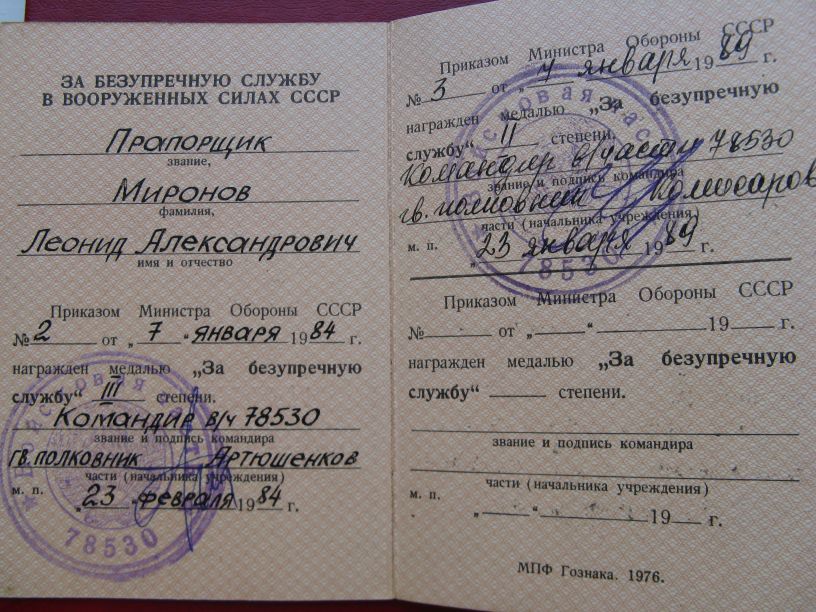 ЗА БЕЗУПРЕЧНУЮ СЛУЖБУ
В ВООРУЖЕННЫХ СИЛАХ СССР
Прапорщик
звание,
Миронов
фамилия,
Леонид Александрович
имя и отчество
Приказом Министра Обороны СССР
№ 2 от „ 7 “ января 19 84 г.
награжден медалью „За безупречную
службу“ III степени.
Командир в/ч 78530
звание и подпись командира
гв. полковник Артюшенков
части (начальника учреждения)
м. п. „ 23 “ февраля 19 84 г.
Войсковая часть
78530
Приказом Министра Обороны СССР
№ 3 от „ 7 января 19 89 г.
награжден медалью „За безупречную
службу“ II степени.
Командир в/части 78530
звание и подпись командира
гв. полковник Комисаров
части (начальника учреждения)
м. п. „ 23 января 19 89 г.
Войсковая часть
78530
Приказом Министра Обороны СССР
№ от „ “ 19 г.
награжден медалью „За безупречную
службу“ степени.
звание и подпись командира
части (начальника учреждения)
м. п.
„ “ 19 г.
МПФ Гознака. 1976.